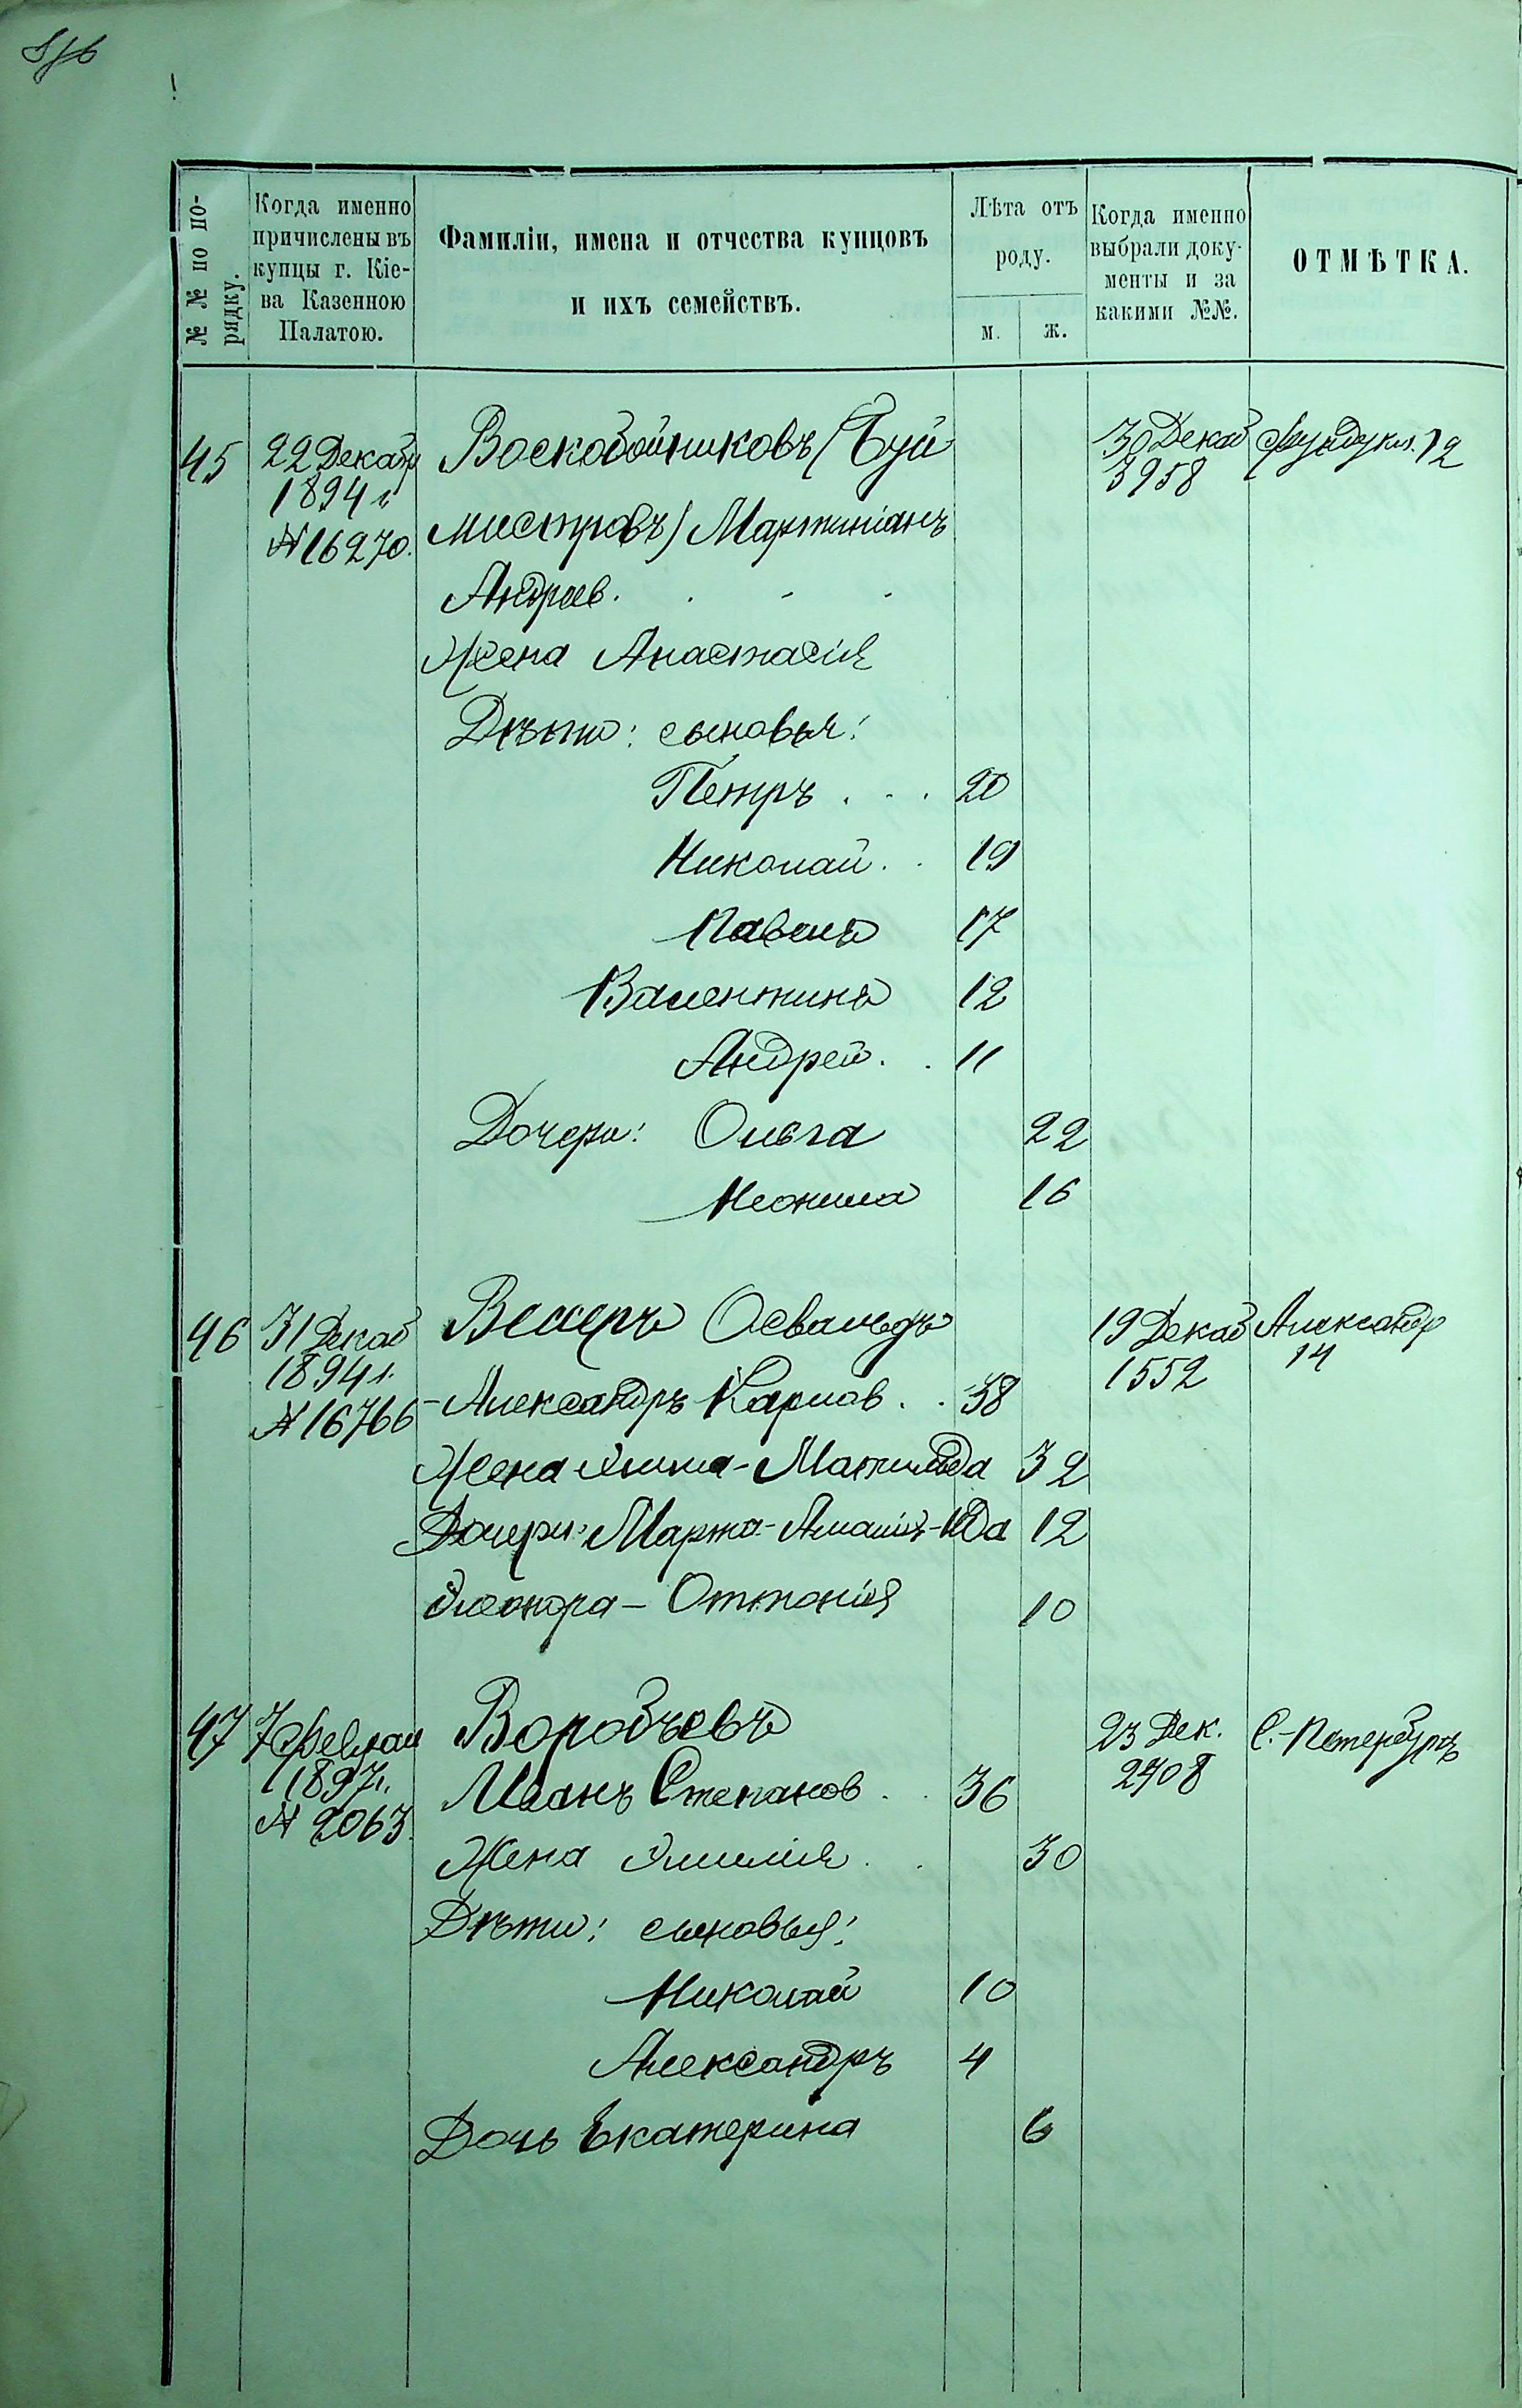 № № по по-
рядку.
Когда именно
причислены въ
купцы г. Кіе-
ва Казенною
Палатою.
Фамиліи, имена и отчества купцовъ
и ихъ семействъ.
Лѣта отъ
роду.
м. ж.
Когда именно
выбрали доку-
менты и за
какими №№.
ОТМѢТКА.
45 22 Декабр Воскобойниковъ (Буй 30 Декаб Фундукл. 12
1894 г. 3958
№ 16270. мистровъ) Мартиніанъ
Андреев.
Жена Анастасія
Дѣти: сыновья:
Петръ 20
Николай 19
Павелъ 17
Валентинъ 12
Андрей 11
Дочери: Ольга 22
Неонила 16
46 31 Декаб Велеръ Освальдъ 19 Декаб Александр
1894 г. 1552 14
№ 16766 - Александръ Карлов. 38
Жена Эмма-Матильда 32
Дочери: Марта-Амалія-Ида 12
Элеонора-Оттонія 10
47 7 Феврал Воробьевъ 23 Дек. С.-Петербургъ
1897 г. 2408
№ 2063. Иванъ Степанов 36
Жена Эмилія 30
Дѣти: сыновья:
Николай 10
Александръ 4
Дочь Екатерина 6